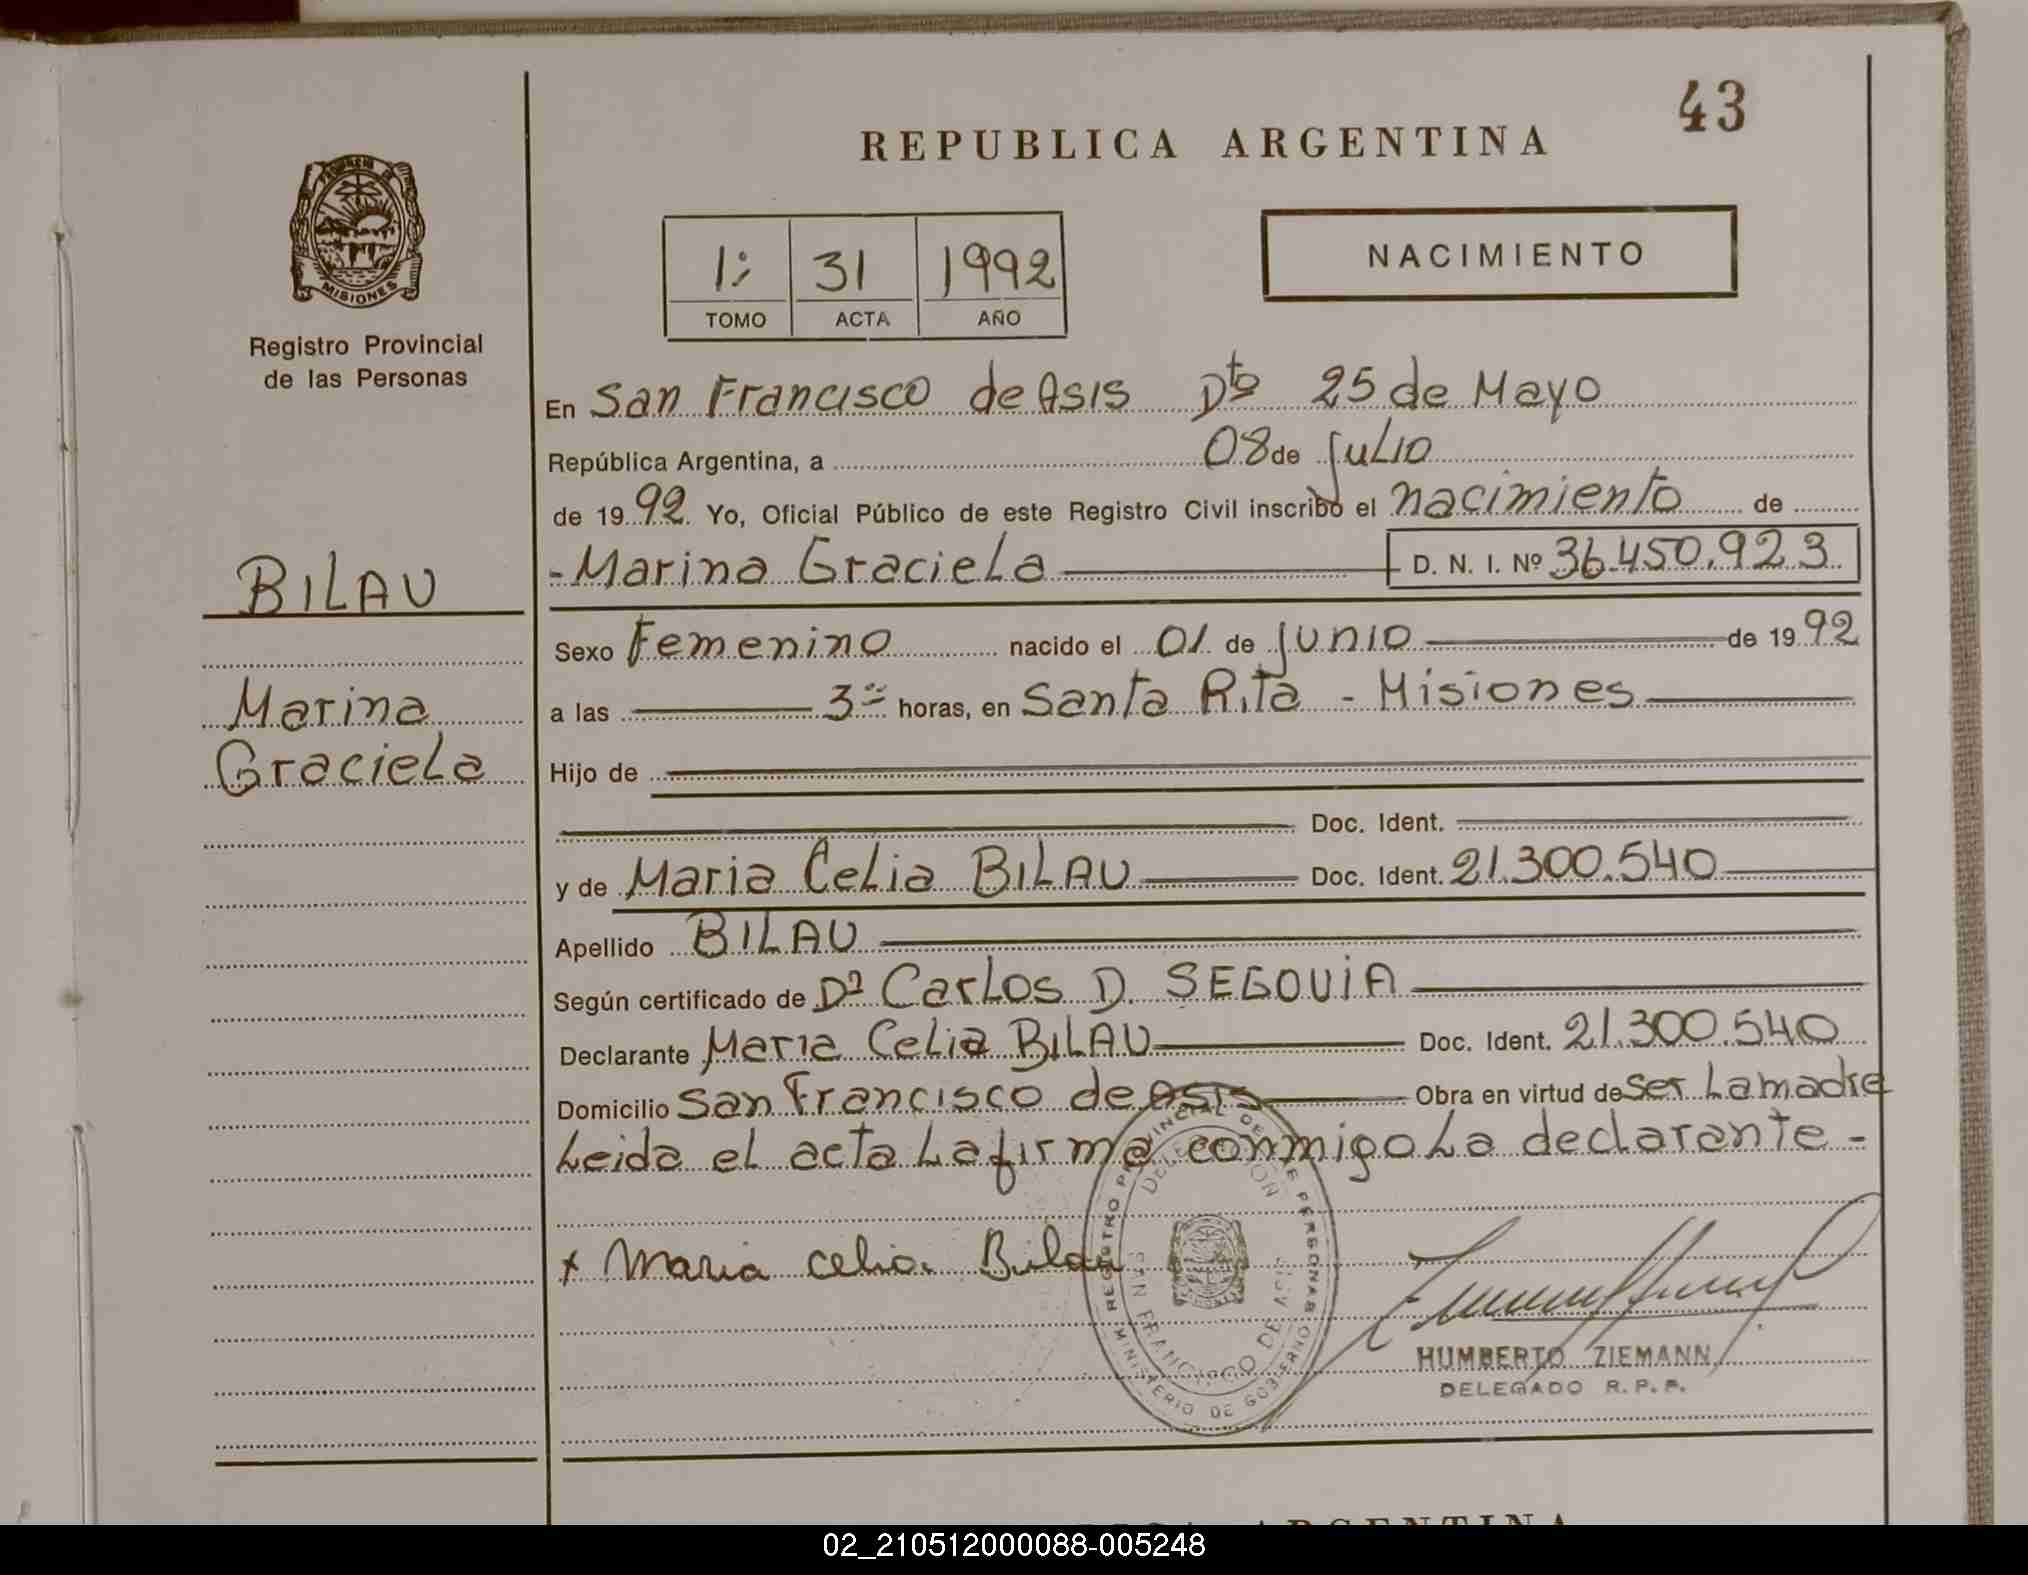 43
REPUBLICA ARGENTINA
PROVINCIA DE
MISIONES
Registro Provincial
de las Personas
1: 31 1992
TOMO ACTA AÑO
NACIMIENTO
En San Francisco de Asis Dto 25 de Mayo
República Argentina, a 08 de Julio
de 1992. Yo, Oficial Público de este Registro Civil inscribo el nacimiento de
BILAU
- Marina Graciela D. N. I. Nº 36.450.923
Sexo Femenino nacido el 01 de Junio de 1992
Marina
Graciela
a las 3 horas, en Santa Rita - Misiones
Hijo de
Doc. Ident.
y de Maria Celia BILAU Doc. Ident. 21.300.540
Apellido BILAU
Según certificado de Carlos D. SEGOVIA
Declarante Maria Celia BILAU Doc. Ident. 21.300.540
Domicilio San Francisco de Asis Obra en virtud de Ser La madre
Leida el acta La firma conmigo La declarante -
x Maria Celia Bilau
REGISTRO PROVINCIAL DE LAS PERSONAS
DELEGACION
SAN FRANCISCO DE ASIS
MINISTERIO DE GOBIERNO
HUMBERTO ZIEMANN
DELEGADO R. P. P.
ARGENTINA
02_210512000088-005248